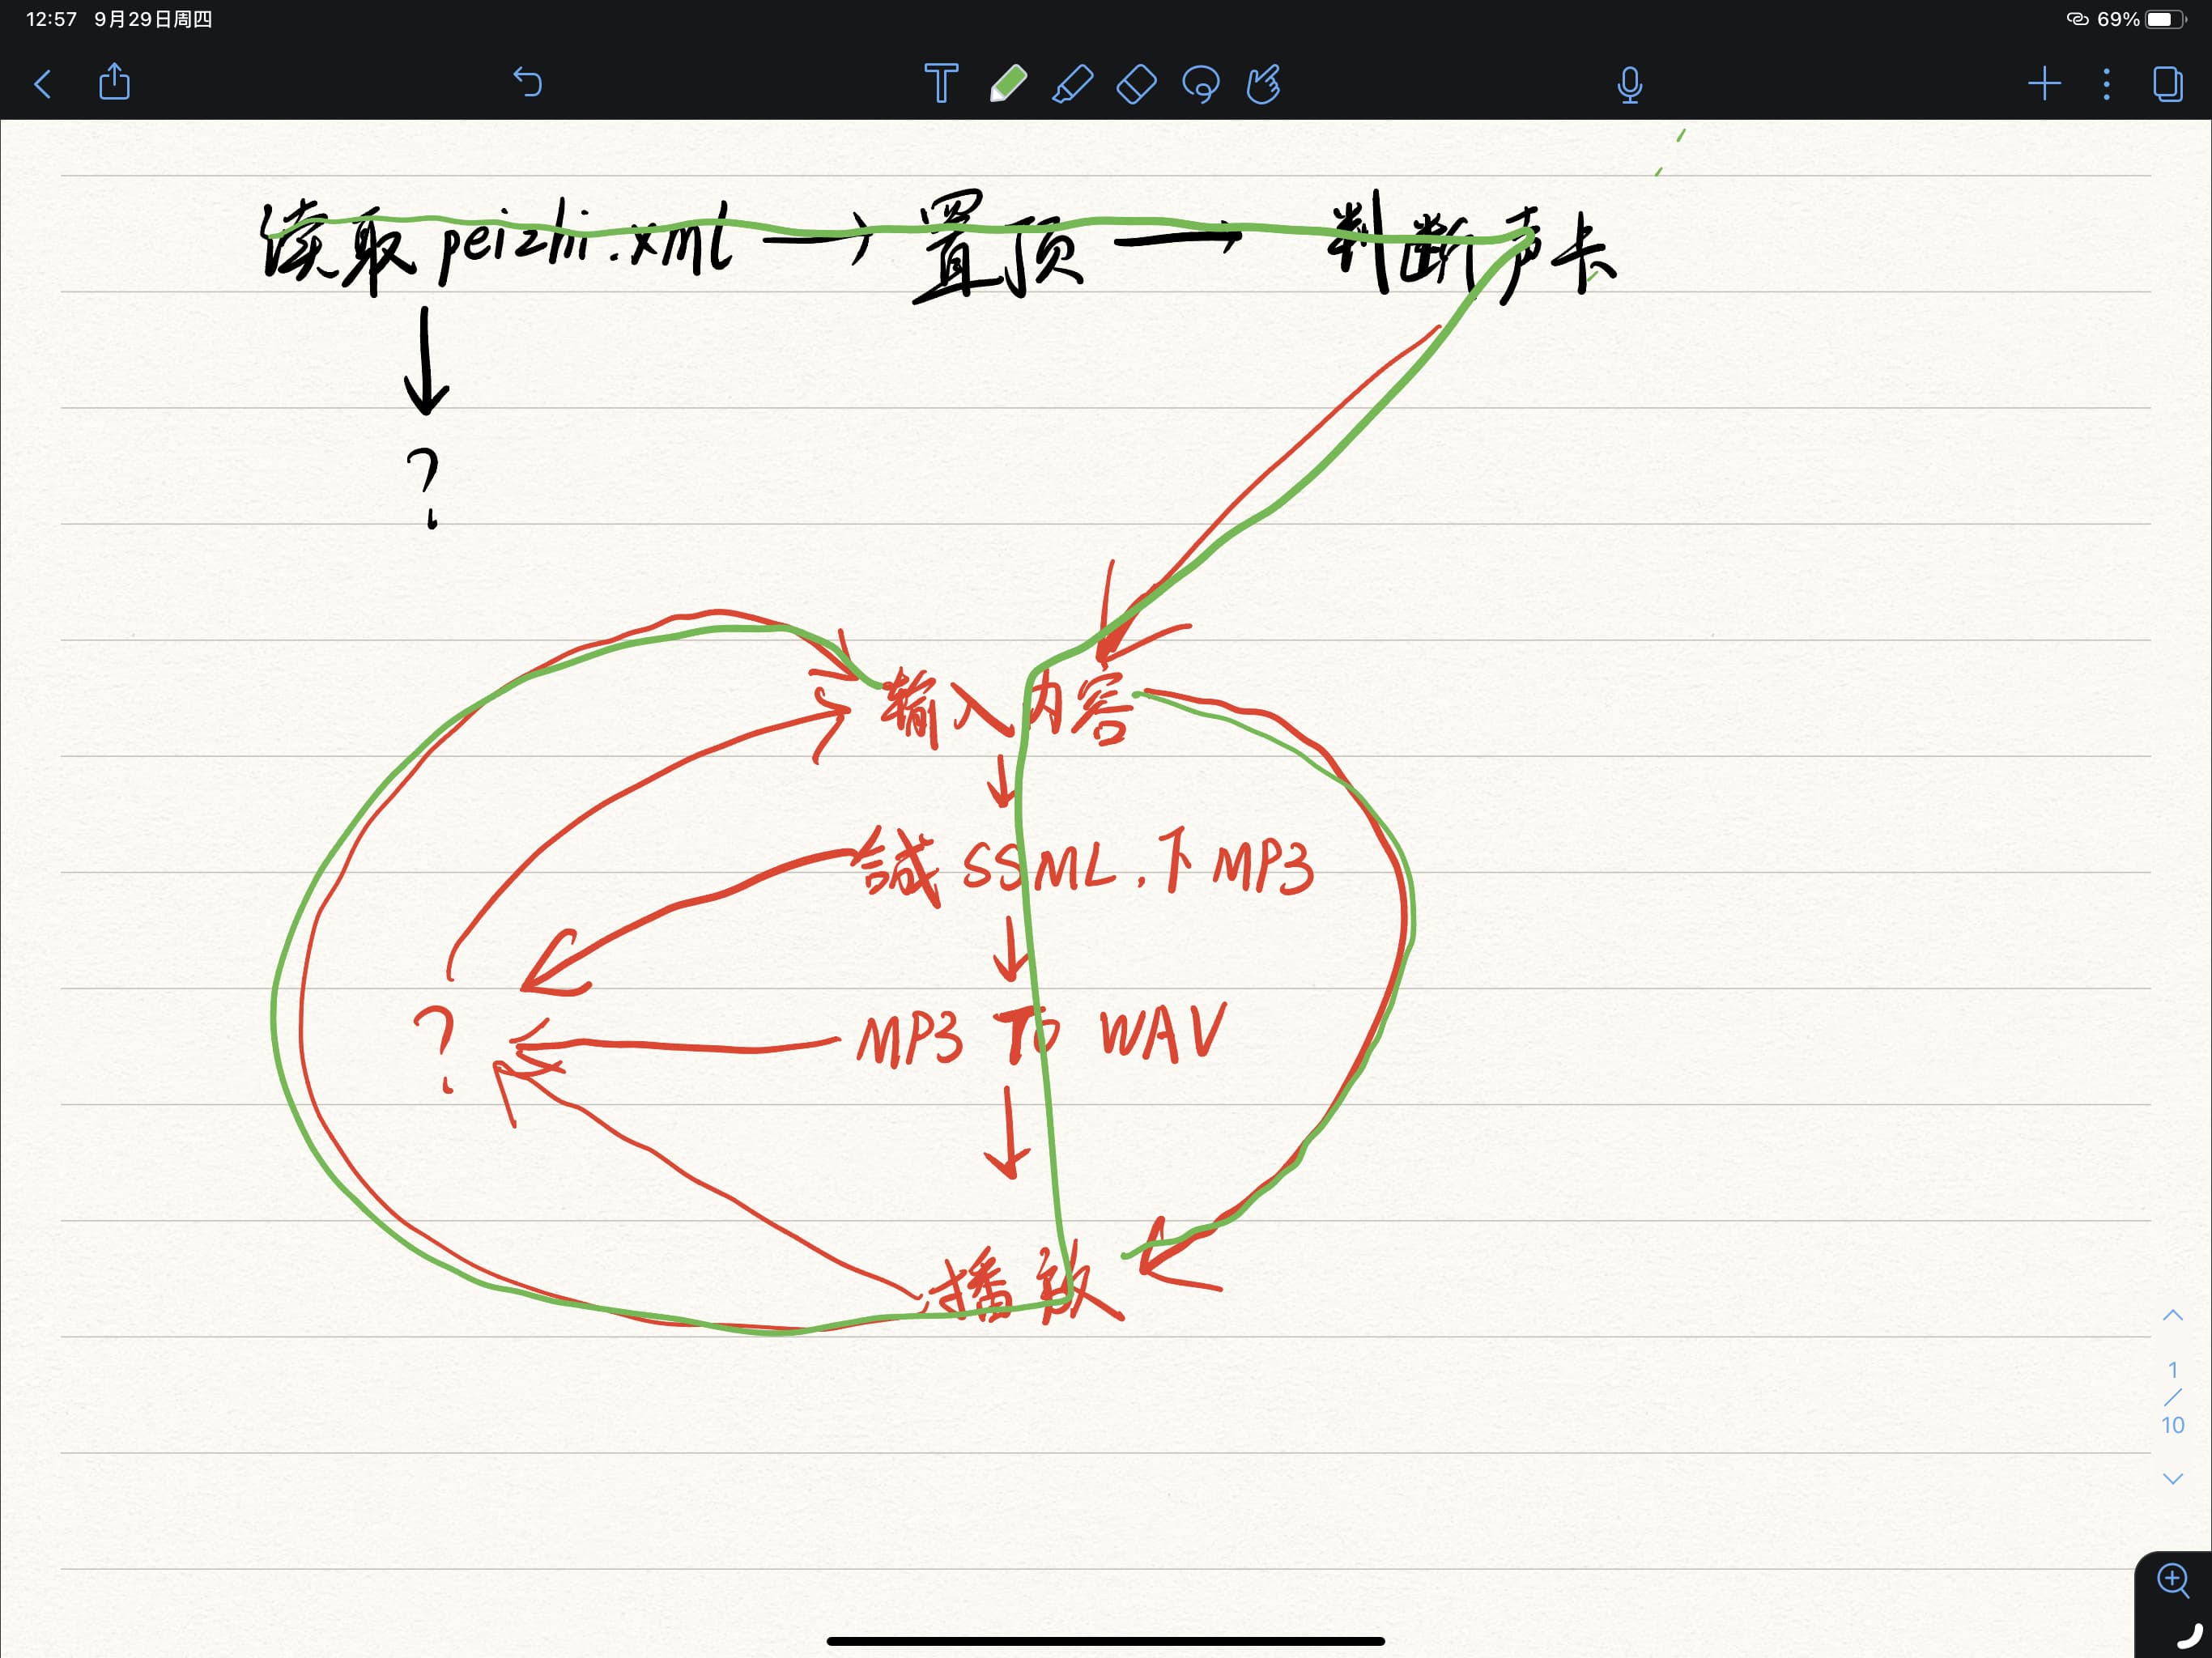 12:57 9月29日周四
69%
读取peizhi.xml → 置顶 → 判断声卡
?
输入内容
合成SSML,下MP3
? MP3 TO WAV
播放
1
/
10